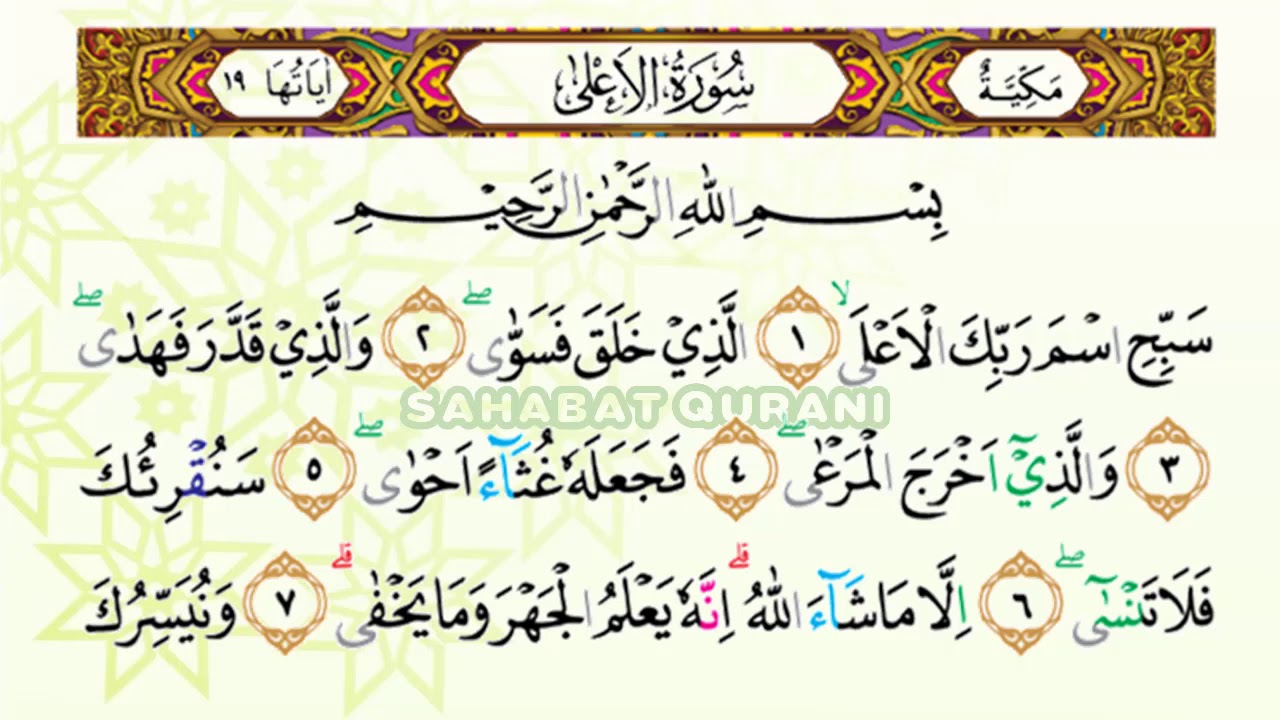 مَكِّيَّةٌ سُوْرَةُ الْاَعْلٰى اٰيَاتُهَا ١٩
بِسْمِ اللّٰهِ الرَّحْمٰنِ الرَّحِيْمِ
سَبِّحِ اسْمَ رَبِّكَ الْاَعْلَىۙ ١ الَّذِيْ خَلَقَ فَسَوّٰىۖ ٢ وَالَّذِيْ قَدَّرَ فَهَدٰىۖ
SAHABAT QURANI
٣ وَالَّذِيْٓ اَخْرَجَ الْمَرْعٰىۖ ٤ فَجَعَلَهٗ غُثَاۤءً اَحْوٰىۖ ٥ سَنُقْرِئُكَ
فَلَا تَنْسٰٓىۖ ٦ اِلَّا مَا شَاۤءَ اللّٰهُ ۗاِنَّهٗ يَعْلَمُ الْجَهْرَ وَمَا يَخْفٰىۗ ٧ وَنُيَسِّرُكَ